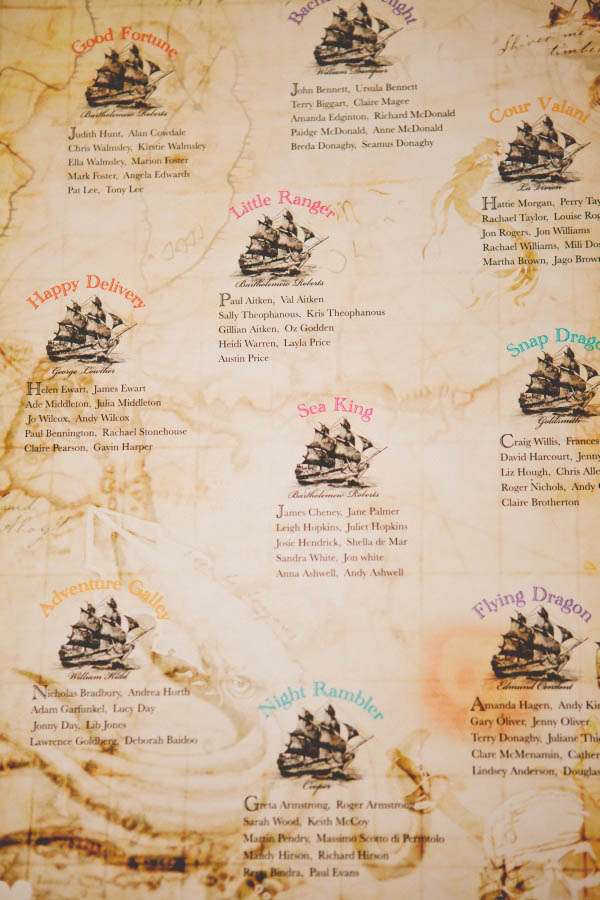 Good Fortune
Bartholomew Roberts
Judith Hunt, Alan Cowdale
Chris Walmsley, Kirstie Walmsley
Ella Walmsley, Marion Foster
Mark Foster, Angela Edwards
Pat Lee, Tony Lee
William Dampier
John Bennett, Ursula Bennett
Terry Biggart, Claire Magee
Amanda Edginton, Richard McDonald
Paidge McDonald, Anne McDonald
Breda Donaghy, Seamus Donaghy
Shiver me
timbe
Cour Valant
La Vivion
Hattie Morgan, Perry Tay
Rachael Taylor, Louise Rog
Jon Rogers, Jon Williams
Rachael Williams, Mili Dos
Martha Brown, Jago Brown
Little Ranger
Bartholomew Roberts
Paul Aitken, Val Aitken
Sally Theophanous, Kris Theophanous
Gillian Aitken, Oz Godden
Heidi Warren, Layla Price
Austin Price
Happy Delivery
George Lowther
Helen Ewart, James Ewart
Ade Middleton, Julia Middleton
Jo Wilcox, Andy Wilcox
Paul Bennington, Rachael Stonehouse
Claire Pearson, Gavin Harper
Snap Drago
Goldsmith
Craig Willis, Frances
David Harcourt, Jenny
Liz Hough, Chris Alle
Roger Nichols, Andy
Claire Brotherton
Sea King
Bartholomew Roberts
James Cheney, Jane Palmer
Leigh Hopkins, Juliet Hopkins
Josie Hendrick, Shella de Mar
Sandra White, Jon white
Anna Ashwell, Andy Ashwell
Adventure Galley
William Kidd
Nicholas Bradbury, Andrea Horth
Adam Garfunkel, Lucy Day
Jonny Day, Lib Jones
Lawrence Goldberg, Deborah Baidoo
Flying Dragon
Edmund Condent
Amanda Hagen, Andy Ki
Gary Oliver, Jenny Oliver
Terry Donaghy, Juliane Thie
Clare McMenamin, Cather
Lindsey Anderson, Douglas
Night Rambler
Cooper
Greta Armstrong, Roger Armstrong
Sarah Wood, Keith McCoy
Martin Pendry, Massimo Scotto di Perrotolo
Mandy Hirson, Richard Hirson
Bindra, Paul Evans